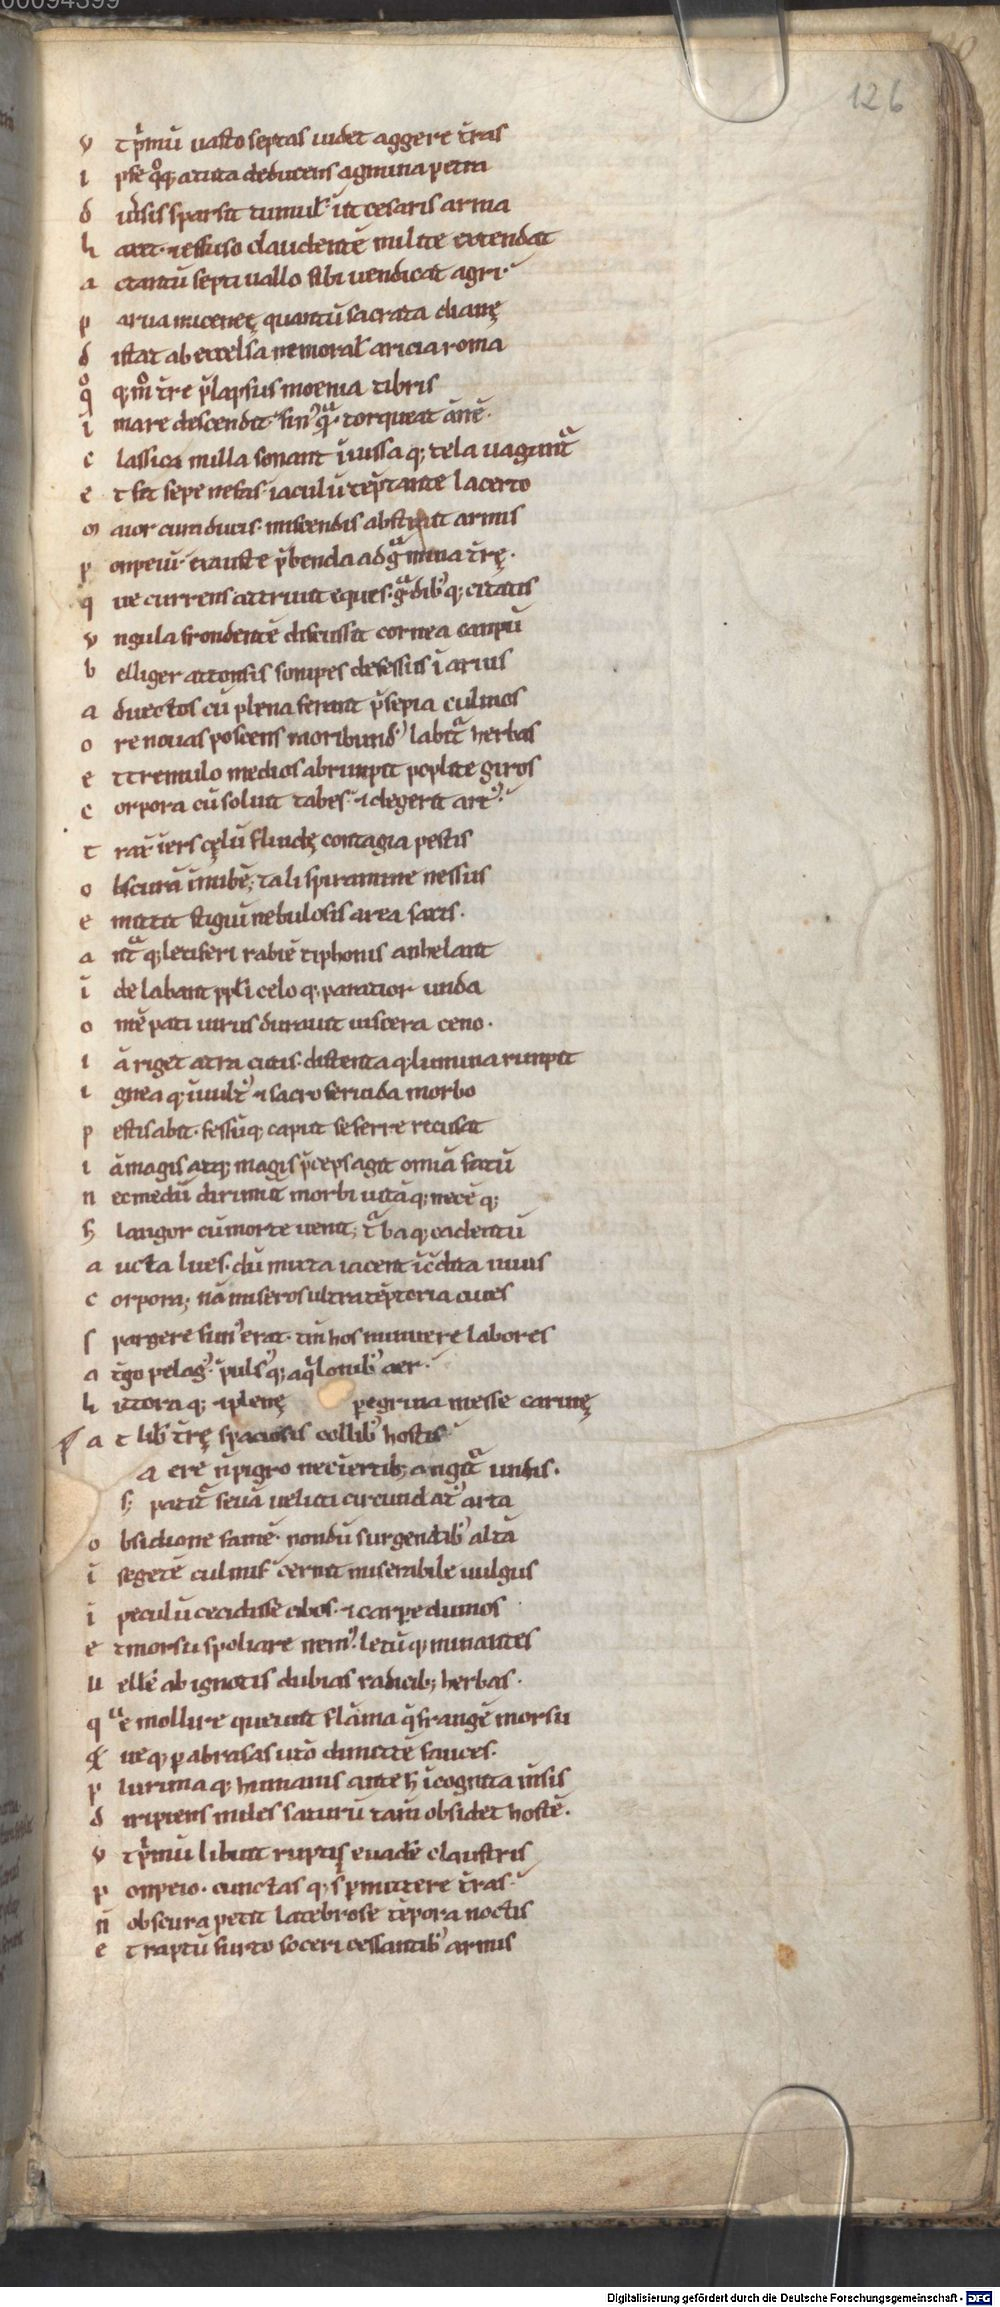 00094399
126
v tpͥmū uasto septas uidet aggere t̄ras
i pse qͦq; a tuta deducens agmina petra
d iu̾sis sparsit tumul̄ ut cesaris arma
h axet ⁊ effuso claudentē milite extendat
a c tantū septi uallo sibi uendicat agri
p arua micenę quantū sacrata dianę
d istat ab excelsa nemoral̄ aricia roma
qͦ q; mͦ t̄re p̄lapsus moenia tibris
i mare descendit si n̄ qᷓ torqueat ānē
c lassica nulla sonant īiussa q; tela uagant᷑
e t fit sepe nefas iaculū tēptante lacerto
m aior cura ducis miscendis abstrait armis
p onpeiū exauste p̄benda ad gᷓmina t̄rę
q ue currens attriuit eques gᷓdib᷒q; citatis
v ngula frondentē discussit cornea canpū
b elliger attonsis sonipes defessus ī aruis
a duectos cū plena ferant p̄sepia culmos
o re nouas poscens moribund᷒ labit᷑ herbas
e t tremulo medios abrumpit poplite giros
c orpora cū soluit tabes ⁊ degerit art᷒
t rax̄ iners cęlū fluidę contagia pestis
o bscurā ī nubē; tali spiramine nessus
e mittit stigiū nebulosis area saxis
a nt᷑q; letiferi rabiē tiphonis anhelant
i de labant pp̄li celo q; paratior unda
o mē pati uirus durauit uiscera ceno
i ā riget atra cutis distenta q; lumina rumpit
i gnea q; ī uult᷒ ⁊ sacro feruida morbo
p estis abit fessūq; caput se ferre recusat
i ā magis atq; magis p̄ceps agit omīa fatū
n ec mediū dirimit morbi uitāq; necēq;
s; langor cū morte uenit; t᷑baq; cadentū
a ucta lues dū mixta iacent īc̄dita uiuis
c orpora; nā miseros ultra tēptoria ciues
s pargere fun᷒ erat tn̄ hos minuere labores
a t̄go pelag᷒ ⁊ puls᷒q; aqͥlonib᷒ aer
l ittoraq; ⁊ plenę pegrina messe carinę
a t lib t̄rę spaciosis collib᷒ hostis
a ere n̄ pigro nec īertib; angit᷑ undis
s; patit᷑ seuā ueluti circund at᷒ arta
o bsidione famē nondū surgentib᷒ altā
i segetē culmis cernit miserabile uulgus
i peculū cecidisse cibos ⁊ carpe dumos
e t morsu spoliare nem᷒ letūq; minantes
u elle ab ignotis dubias radicib; herbas
q ue mollire queunt flāma q̄ frangē morsu
q ueq; p abrasas utō dimittē fauces
p lurimaq; humanis ante h̄ īcognita m̄sis
d iripiens miles saturū tam̄ obsidet hostē
v t pͥmū libuit ruptis euadē claustris
p onpeio cunctas q; s̄ pmittere t̄ras
n̄ obscura petit latebrose tēpora noctis
e t raptū furto soceri cessantib᷒ armis
Digitalisierung gefördert durch die Deutsche Forschungsgemeinschaft - DFG